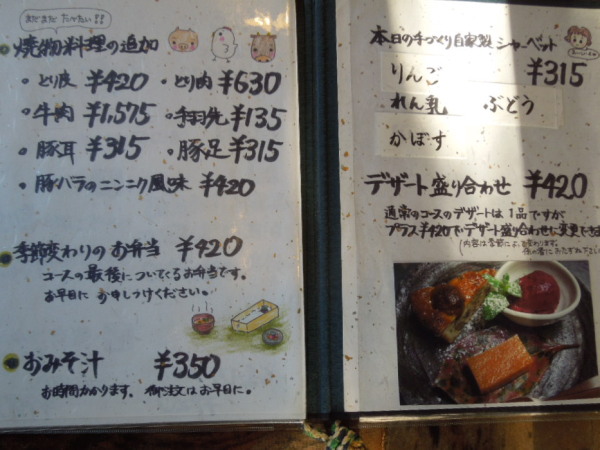 まだまだ
たべたい!!
焼物料理の追加
・とり皮 ¥420 ・とり肉 ¥630
・牛肉 ¥1,575 ・手羽先 ¥135
・豚耳 ¥315 ・豚足 ¥315
・豚バラのニンニク風味 ¥420
季節変わりのお弁当 ¥420
コースの最後についてくるお弁当です。
お早目にお申しつけください。
おみそ汁 ¥350
お時間かかります。御注文はお早目に。
本日の手づくり自家製シャーベット
りんご ¥315
れん乳 ぶどう
かぼす
デザート盛り合わせ ¥420
通常のコースのデザートは1品ですが
プラス¥420でデザート盛り合わせに変更できま
(内容は季節によって変わります。